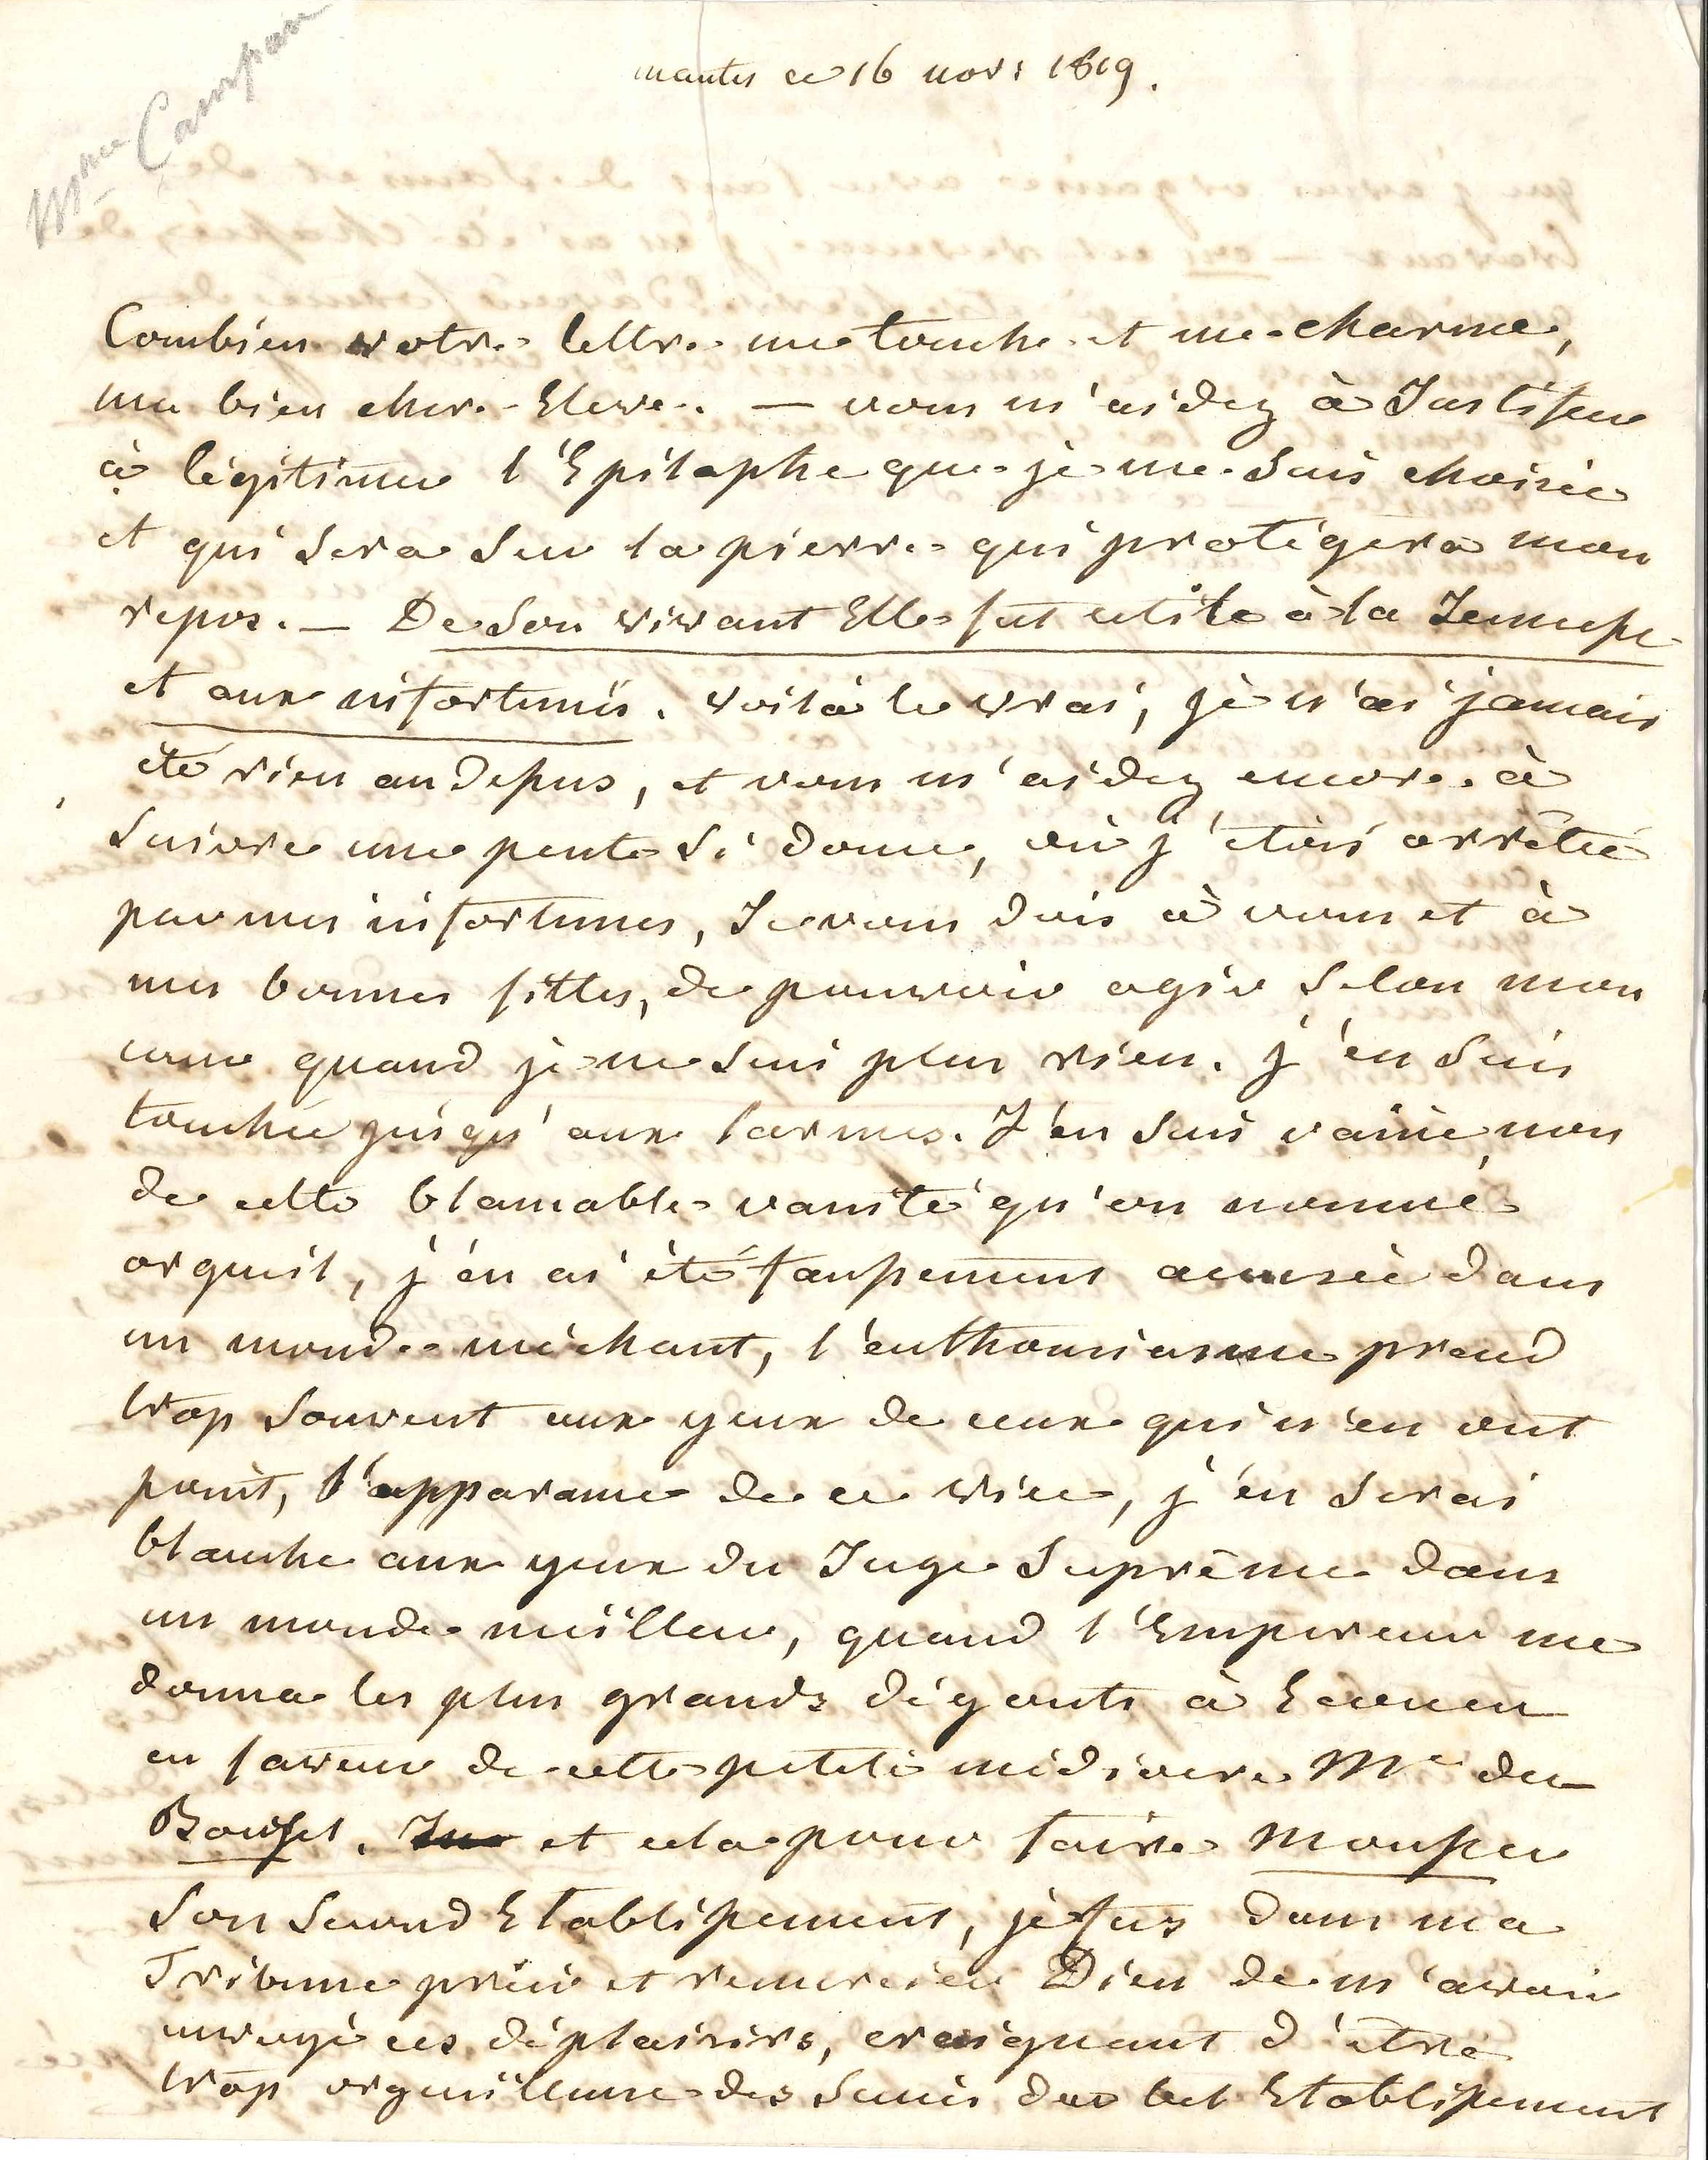 Mme Campan
mantes ce 16 nov: 1819.
Combien votre lettre me touche et me charme,
ma bien chere Eleve. — vous m'aidez à Justifier
à légitimer l'Epitaphe que je me suis choisie
et qui sera sur la pierre qui protégera mon
repos. — De son vivant Elle fut utile à la Jeunesse
et aux infortunés. voilà le vrai, je n'ai jamais
été rien au dessus, et vous m'aidez encore à
suivre une pente si douce, où j'etois arrêtée
par mes infortunes, Je vous dois à vous et à
mes bonnes filles, de pouvoir agir selon mon
cœur quand je ne suis plus rien. j'en suis
touchée jusqu'aux larmes. J'en suis vaine, non
de cette blamable vanité qu'on nomme
orgueil, j'en ai été faussement accusée dans
un monde méchant, l'enthousiasme prend
trop souvent aux yeux de ceux qui n'en ont
point, l'apparance de ce vice, j'en serai
blanche aux yeux du Juge Suprême dans
un monde meilleur, quand l'Empereur me
donna les plus grands dégouts à Ecouen
en faveur de cette petite médiocre Me du
Bouset. et cela pour faire mousser
son second Etablissement, je fus dans ma
Tribune prier et remercier Dieu de m'avoir
envoyé ces déplaisirs, craignant d'être
trop orgueilleuse des succès du bel Etablissement